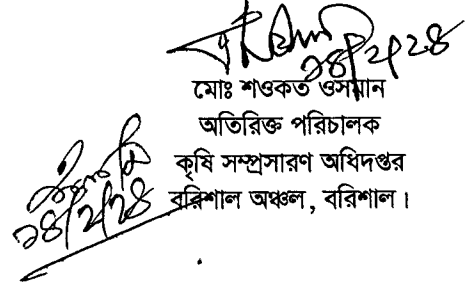 ১৪/২/২৪
মোঃ শওকত ওসমান
অতিরিক্ত পরিচালক
কৃষি সম্প্রসারণ অধিদপ্তর
বরিশাল অঞ্চল, বরিশাল।
১৪/২/২৪